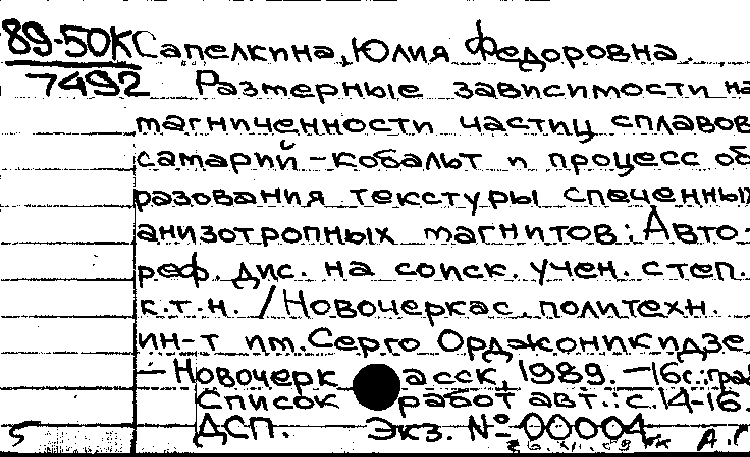 89-50К Сапелкина, Юлия Федоровна.
7492 Размерные зависимости на
магниченности частиц сплавов
самарий-кобальт и процесс об
разования текстуры спеченных
анизотропных магнитов: Авто-
реф. дис. на соиск. учен. степ.
к.т.н. / Новочеркас. политехн.
ин-т им. Серго Орджоникидзе
— Новочеркасск, 1989. — 16с.:граф
Список работ авт.: с.14-16.
5 ДСП. Экз. № 00004